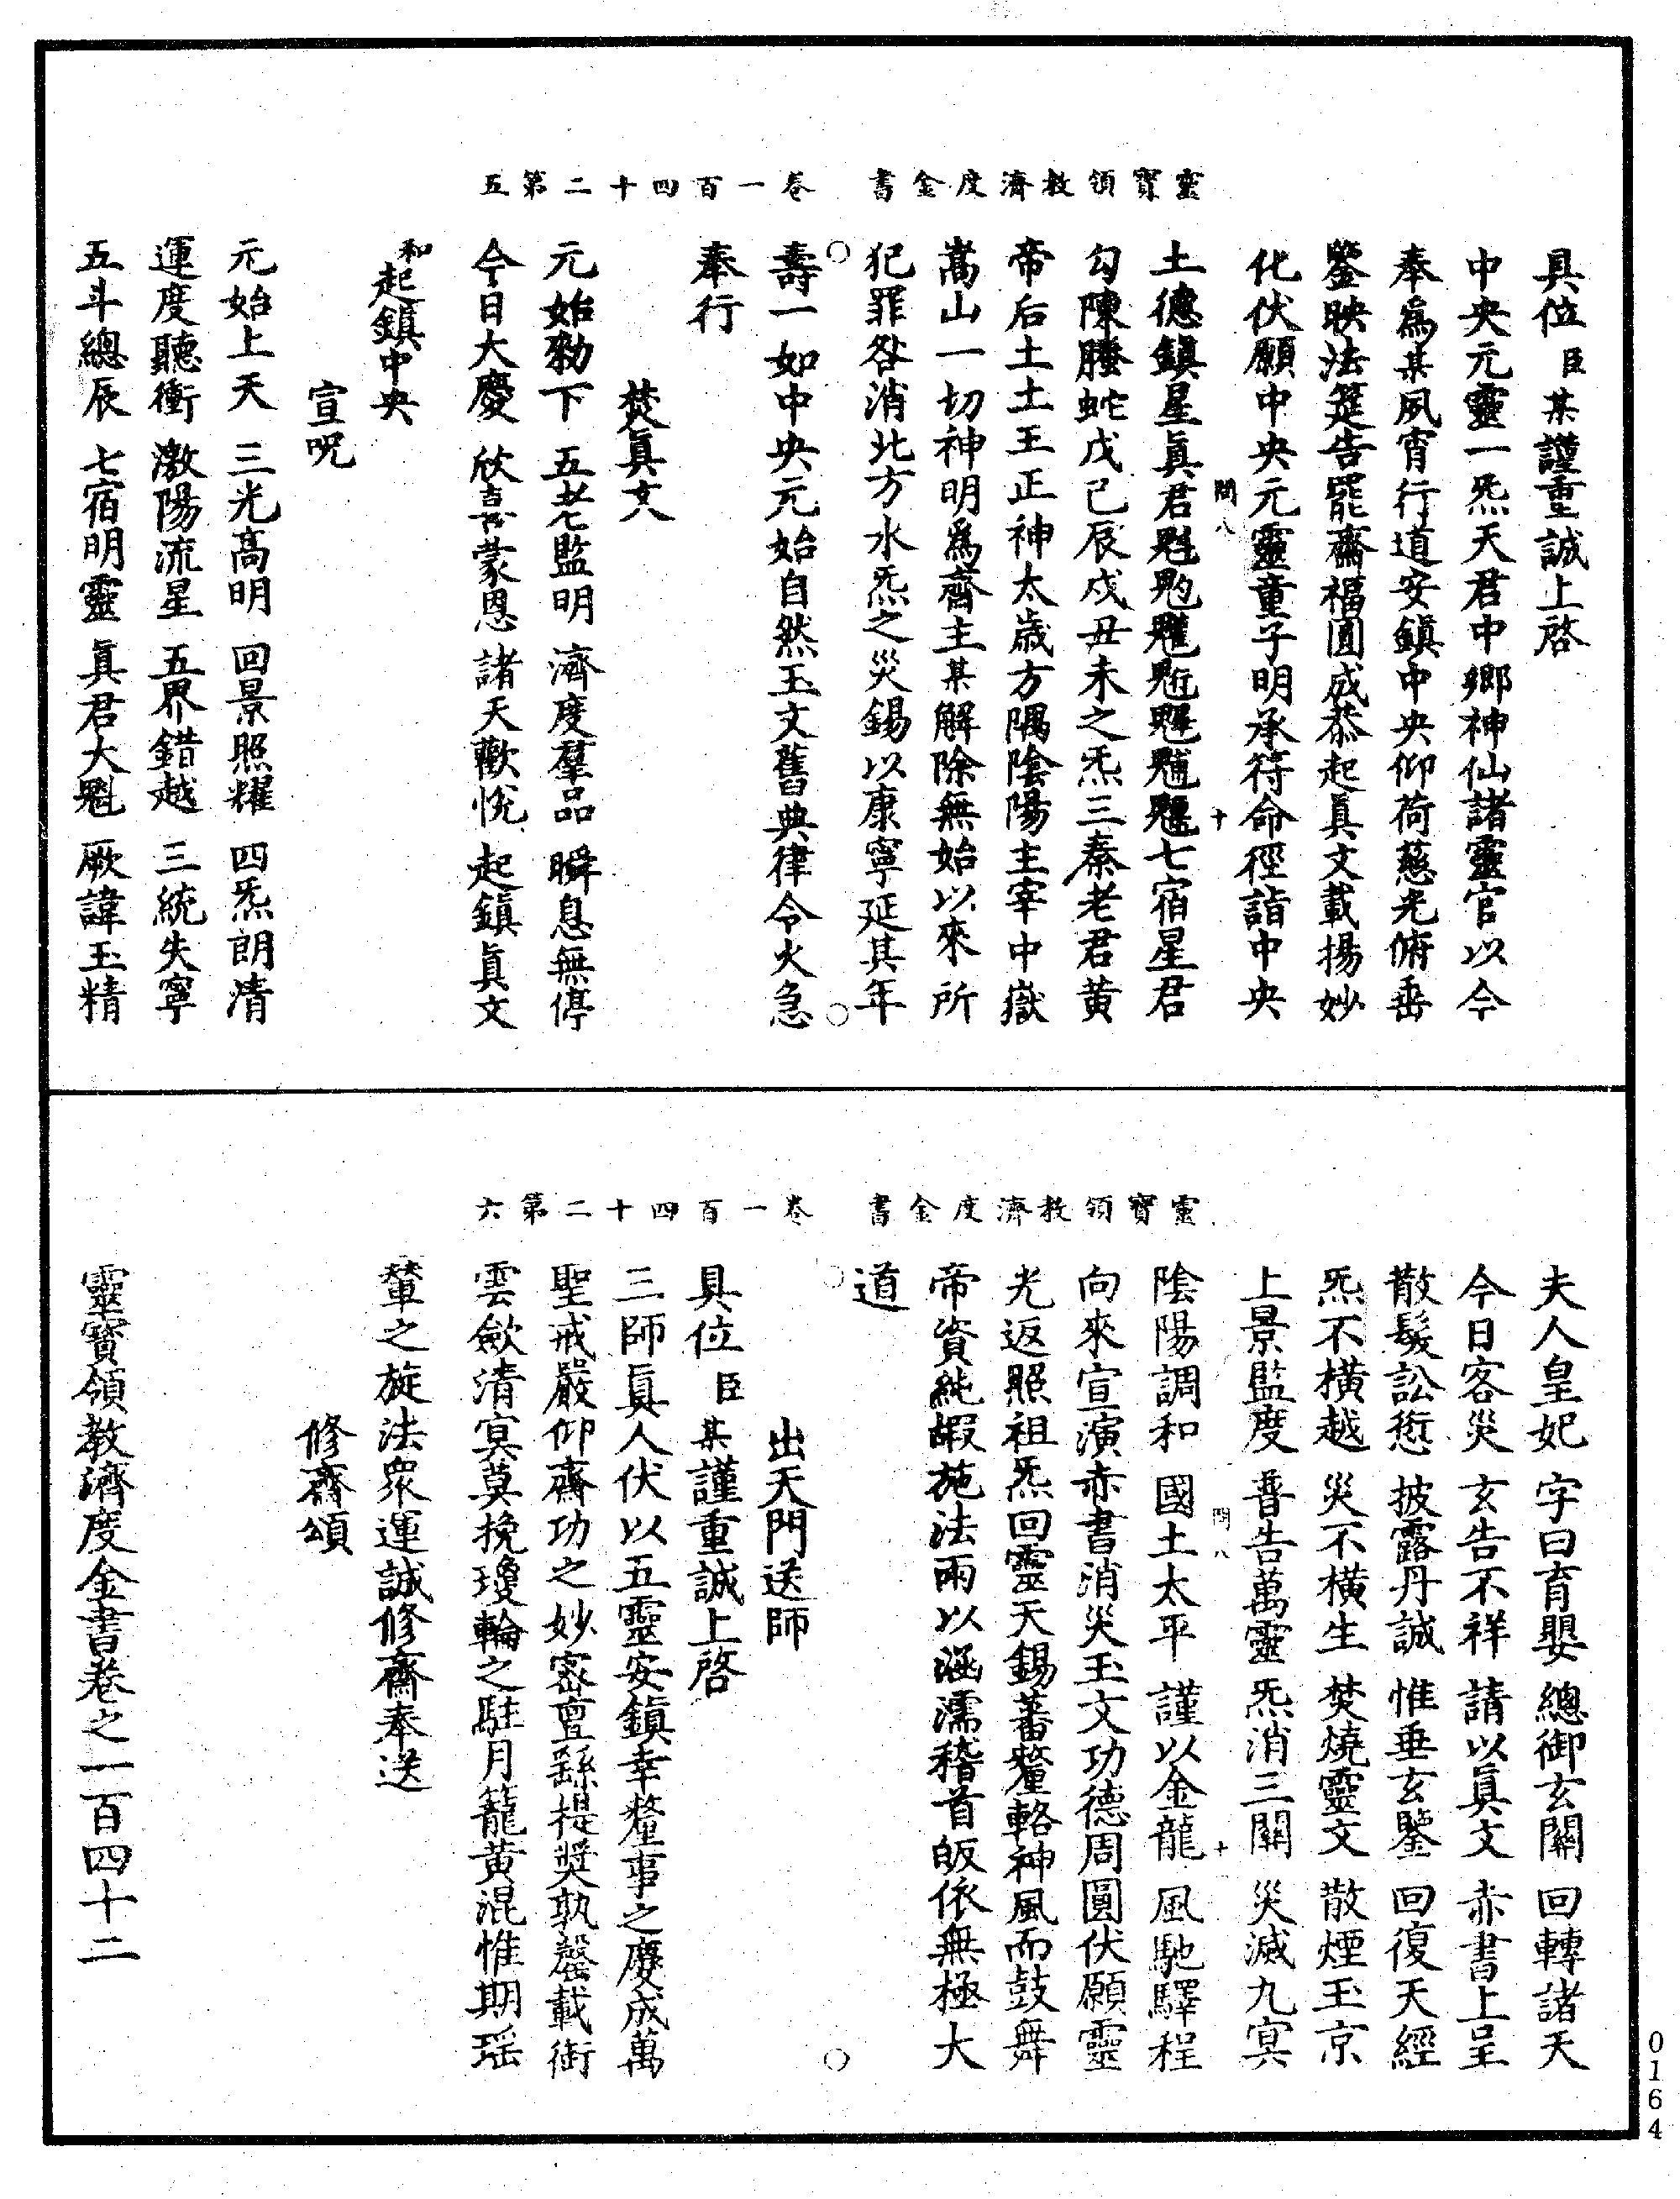 靈寶領教濟度金書　卷一百四十二第五
具位臣某謹重誠上啓
中央元靈一炁天君中鄉神仙諸靈官以今
奉爲某夙宵行道安鎮中央仰荷慈光俯垂
鑒映法筵告罷齋福圓成恭起眞文載揚妙
化伏願中央元靈童子明承符命徑詣中央
土德鎮星眞君魁𩲃䰢魓䰡魒魕七宿星君
勾陳螣蛇戊己辰戌丑未之炁三秦老君黃
帝后土土王正神太歲方隅陰陽主宰中嶽
嵩山一切神明爲齋主某解除無始以來所
犯罪咎消北方水炁之災錫以康寧延其年
壽一如中央元始自然玉文舊典律令火急
奉行
焚眞文
元始勑下　五老監明　濟度羣品　瞬息無停
今日大慶　欣喜蒙恩　諸天歡悅　起鎮眞文
和起鎮中央
宣呪
元始上天　三光高明　回景照耀　四炁朗清
運度聽衝　激陽流星　五界錯越　三統失寧
五斗總辰　七宿明靈　眞君大魁　厥諱玉精
閒八
十
靈寶領教濟度金書　卷一百四十二第六
夫人皇妃　字曰育嬰　總御玄關　回轉諸天
今日客災　玄告不祥　請以眞文　赤書上呈
散髮訟愆　披露丹誠　惟垂玄鑒　回復天經
炁不橫越　災不橫生　焚燒靈文　散煙玉京
上景監度　普告萬靈　炁消三關　災滅九冥
陰陽調和　國土太平　謹以金龍　風馳驛程
向來宣演赤書消災玉文功德周圓伏願靈
光返照祖炁回靈天錫蕃釐輅神風而鼓舞
帝資純嘏施法雨以涵濡稽首皈依無極大
道
出天門送師
具位臣某謹重誠上啓
三師眞人伏以五靈安鎮幸釐事之慶成萬
聖戒嚴仰齋功之妙密亶繇提奬孰罄載銜
雲歛清冥莫挽瓊輪之駐月籠黃混惟期瑶
輦之旋法衆運誠修齋奉送
修齋頌
靈寶領教濟度金書卷之一百四十二
閒八
十
0164